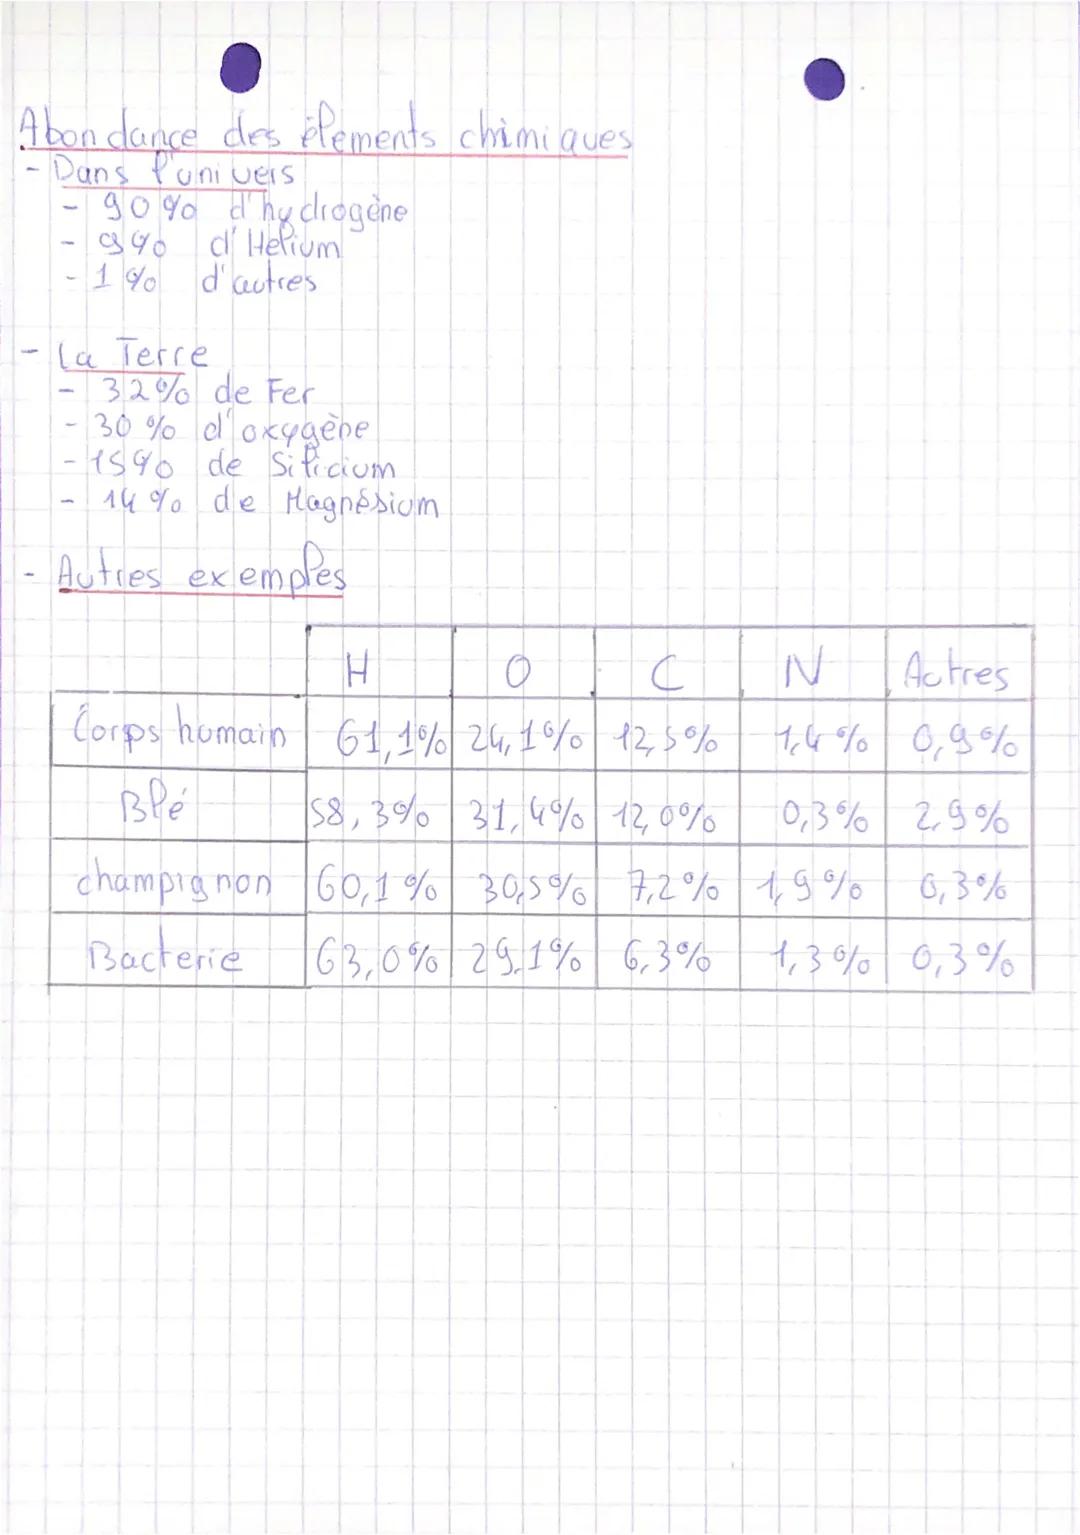 Abondance des élements chimiques
- Dans l'univers
- 90% d'hydrogène
- 9% d'Helium
- 1% d'autres
- La Terre
- 32% de Fer
- 30% d'oxygène
- 15% de Silicium
- 14% de Magnésium
- Autres exemples
H O C N Autres
Corps humain 61,1% 24,1% 12,5% 1,4% 0,9%
Blé 58,3% 31,4% 12,0% 0,3% 2,9%
champignon 60,1% 30,5% 7,2% 1,9% 0,3%
Bacterie 63,0% 29,1% 6,3% 1,3% 0,3%